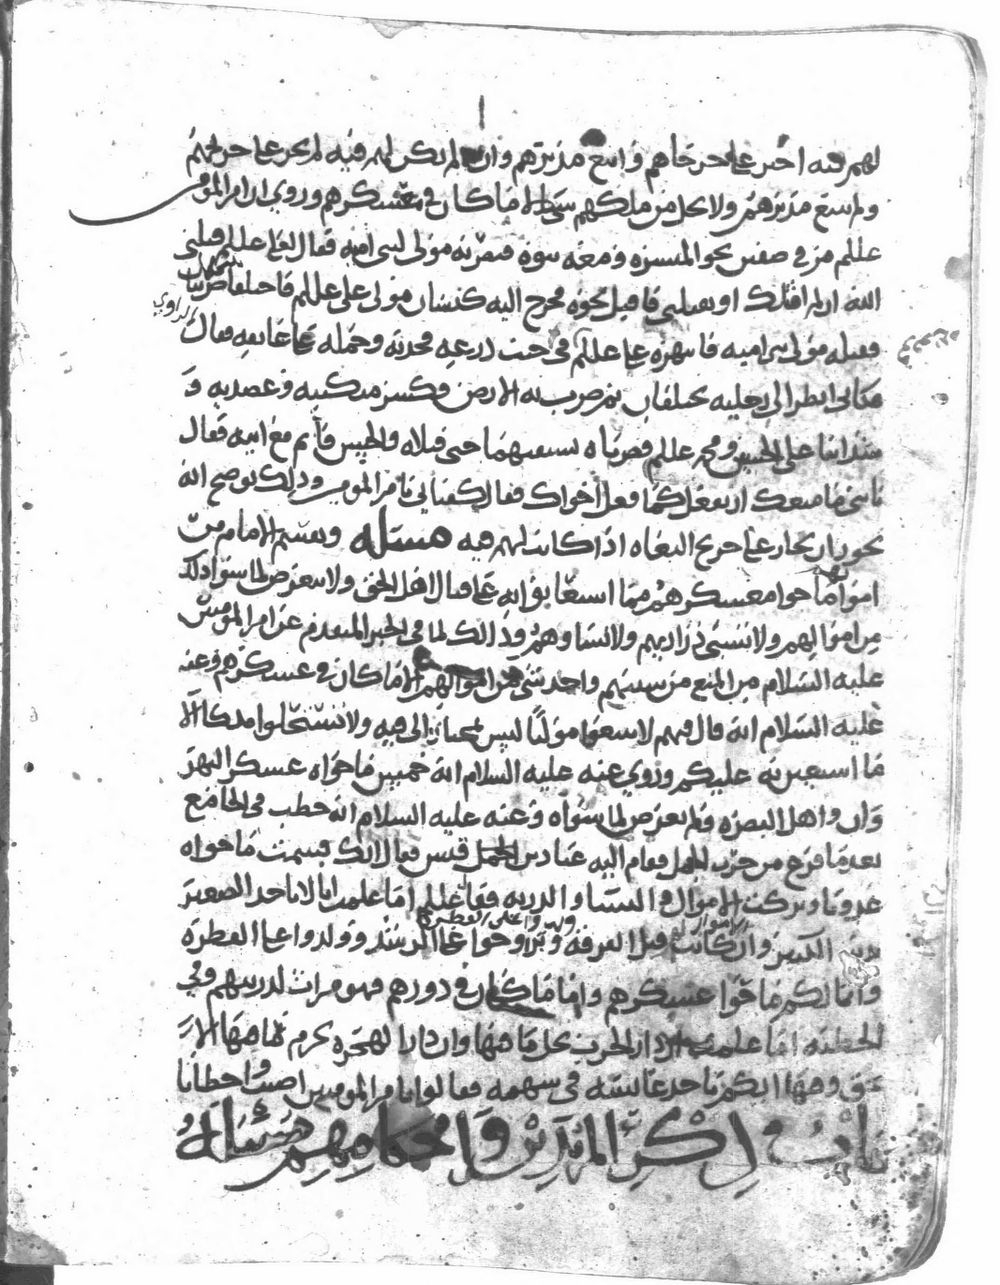 لهم فيه اجهز على جرحاهم واتبع مدبرهم وان لم يكن لهم فيه لم يجز على جريحهم
ولم يتبع مدبرهم ولا يحل من ملكهم شيا الا ما كان في معسكرهم وروي ان امير المومنين
عللم مر في صفين نحو الميسرة ومعه بنوه فبصر به مولى لبني اميه فقال لعلي عللم قتلني
الله ان لم اقتلك او تقتلني فاقبل نحوه فخرج اليه كيسان مولى علي عللم فاختلفا ضربتان
الراوي
فقتله مولى بني اميه فانتهزه علي عللم في جيب درعه فجذبه وحمله على عاتقه فقال
فكاني انظر الى رجليه يختلفان ثم ضرب به الارض فكسر منكبيه وعضديه و
شد ابنا علي الحسين ومحمد عللم فضرباه بسيفيهما حتى قتلاه والحسن قايم مع ابيه فقال
يا بني ما منعك ان تفعل كما فعل اخواك فقال كفياني يا امير المومنين وذلك يوضح انه
يجوز ان يجاز على جريح البغاه اذا كانت لهم فيه مسئله ويغنم الامام من
اموالهم ما حوا معسكرهم مما استعانوا به على قتال اهل الحق ولا يتعرض لما سوا ذلك
من اموالهم ولا تسبى ذراريهم ولا نساوهم وذلك لما في الخبر المتقدم عن امير المومنين
عليه السلام من المنع من سبيهم واخذ شي من اموالهم الا ما كان في عسكرهم وعنه
عليه السلام انه قال فيهم لا تتبعوا موليا ليس بمنحاز الى فيه ولا تستحلوا ملكا الا
ما استعين به عليكم وروي عنه عليه السلام انه خمس ما حواه عسكر النهر
وان واهل البصره ولم يعرض لما سواه وعنه عليه السلام انه خطب في الجامع
بعد ما فرغ من حرب الجمل فقام اليه عباد بن قيس فقال انك قسمت ما حواه
عدونا وتركت الاموال والنسا والذريه فقال عللم اما علمت انا لا ناخذ الصغير
بذنب الكبير وان الاموال كانت قبل الفرقه وتزاوجوا على الرشد وولدوا على الفطرة
وانما لكم ما حوا عسكرهم واما ما كان في دورهم فهو ميراث لذريتهم وفي
الخطبه اما علمت ان دار الحرب يحل ما فيها وان دار الهجره يحرم ما فيها الا
بحق وفيها ايكم ياخذ عايشه في سهمه فقالوا يا امير المومنين اصبت واخطانا
باب ذكر المرتدين واحكامهم مسئلة